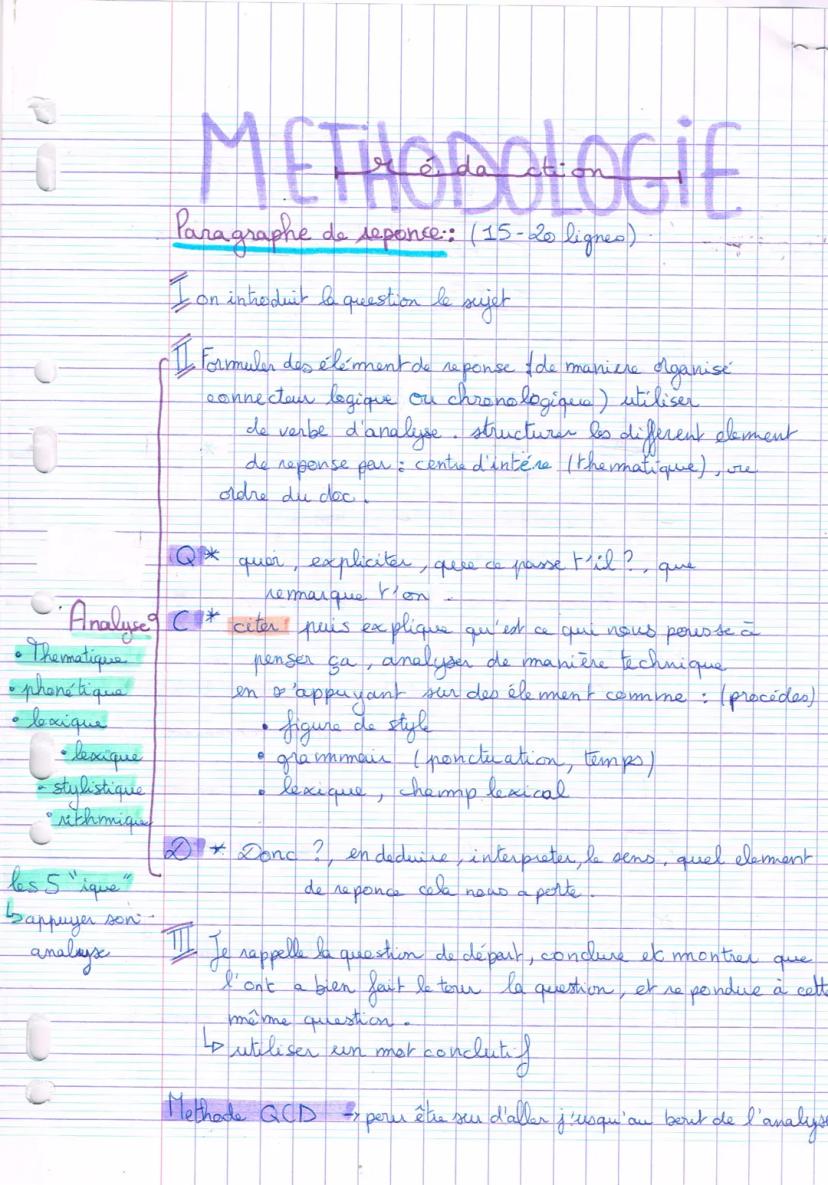 METHODOLOGiE
rédaction
Paragraphe de reponce : (15-20 lignes)
I on introduit la question le sujet
II Formuler des élément de reponse (de maniere organisé
connecteur logique ou chronologique) utiliser
de verbe d'analyse. structurer les different element
de reponse par : centre d'intére (thematique), ou
ordre du doc.
Q * quoi, expliciter, que ce passe t'il ?, que
remarque t'on.
C * citer puis explique qu'est ce qui nous pousse à
penser ça, analyser de manière technique
en s'appuyant sur des élément comme : (procédés)
• figure de style
• grammair (ponctuation, temps)
• lexique, champ lexical
D * Donc ?, en deduire, interpreter, le sens, quel element
de reponce cela nous aporte.
Analyse
• Thematique
• phonétique
• lexique
• lexique
- stylistique
• rithmique
les 5 "ique"
↳ appuyer son
analyse
III Je rappelle la question de départ, conclure et montrer que
l'ont a bien fait le tour la question, et repondue à cette
même question.
↳ utiliser un mot conclutif
Methode QCD → pour être sur d'aller j'usqu'au bout de l'analyse